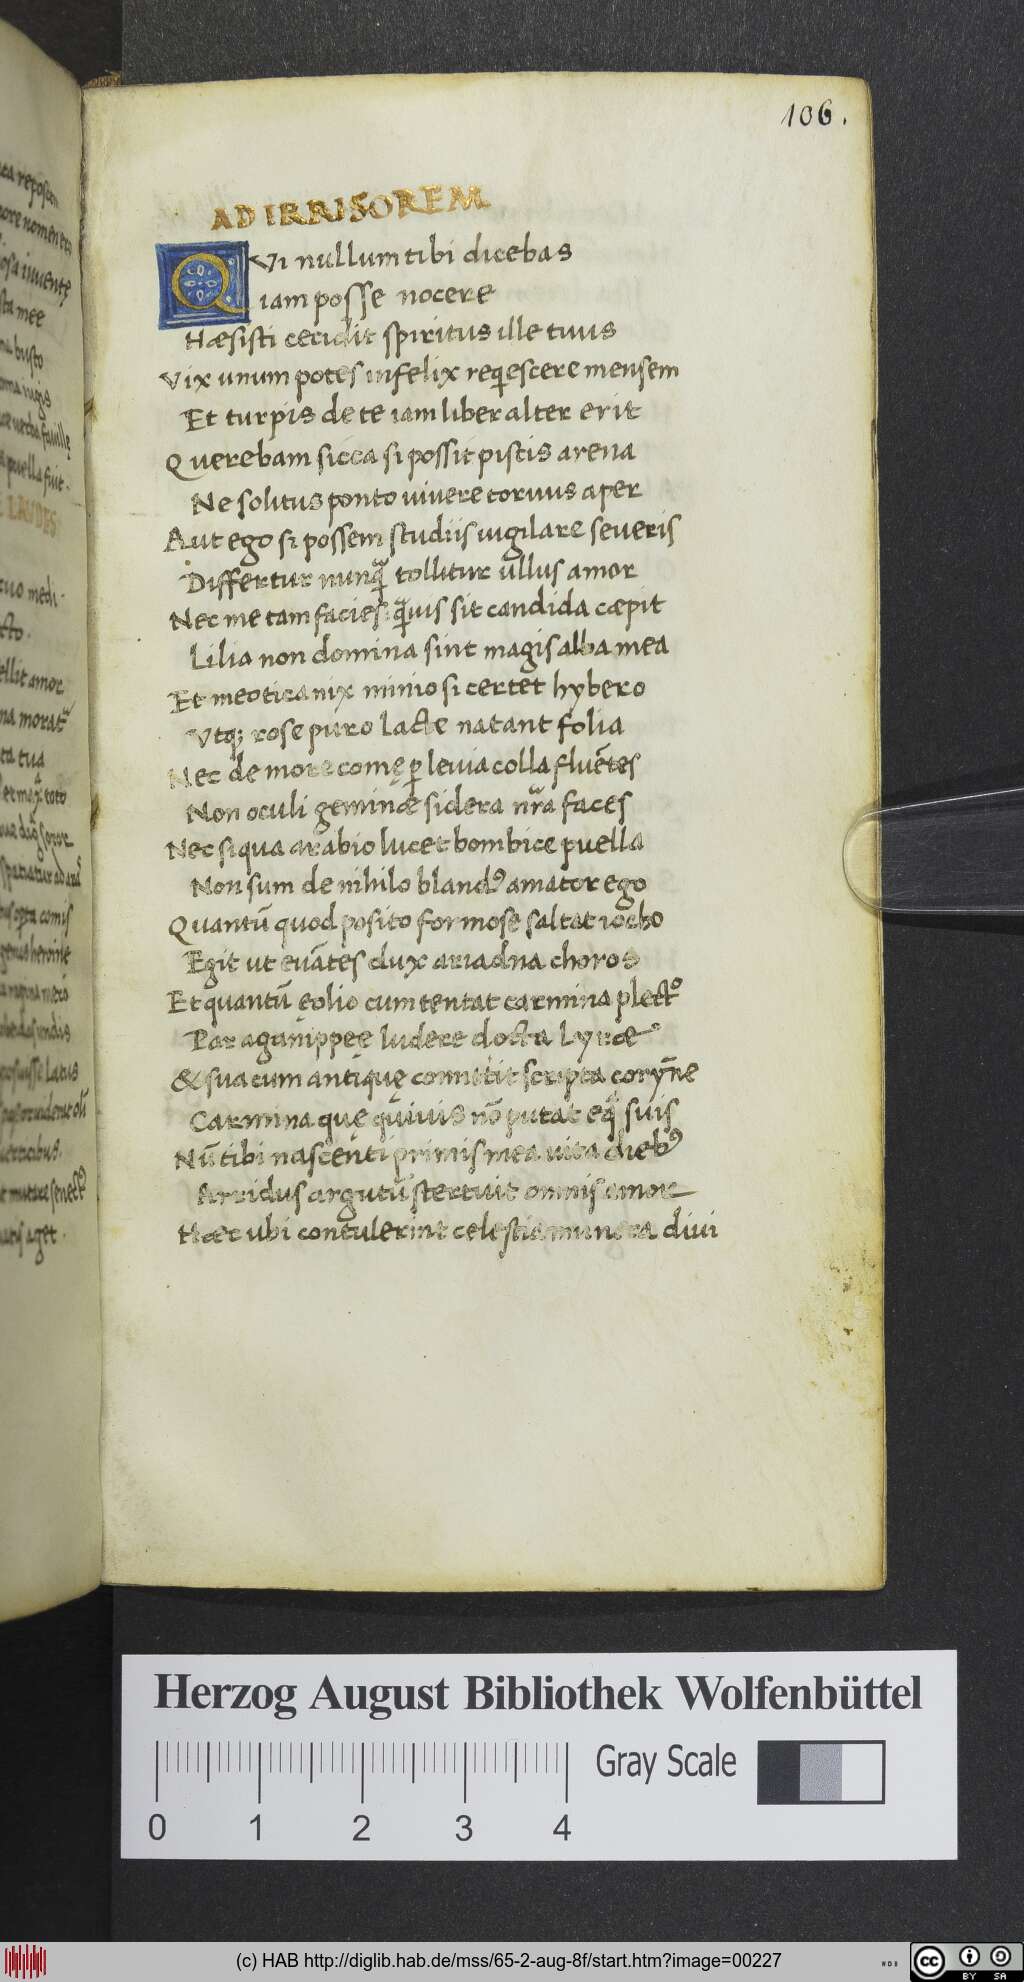 106.
AD IRRISOREM
QVi nullum tibi dicebas
iam posse nocere
Hæsisti cecidit spiritus ille tuus
Vix unum potes infelix reqescere mensem
Et turpis de te iam liber alter erit
Querebam sicca si possit piscis arena
Ne solitus ponto uiuere toruus aper
Aut ego si possem studiis uigilare seueris
Differtur nunq̃ tollitur ullus amor
Nec me tam facies q̃uis sit candida cæpit
Lilia non domina sint magis alba mea
Et meotica nix minio si certet hybero
Vtq; rose puro lacte natant folia
Nec de more comę ꝑ leuia colla fluẽtes
Non oculi geminæ sidera nr̃a faces
Nec siqua arabio lucet bombice puella
Non sum de nihilo blandꝰ amator ego
Quantũ quod posito formose saltat iocho
Egit ut euãtes dux ariadna choros
Et quantũ ęolio cum tentat carmina plectº
Par aganippeę ludere docta Lyræ
& sua cum antiquę committit scripta corỹne
Carmina quę quiuis nõ putat eq̃ suis
Nũ tibi nascenti primis mea uita diebꝰ
Arridus argutũ stertuit omnis amor
Hæc ubi contulerint celestia munera diui
Herzog August Bibliothek Wolfenbüttel
Gray Scale
0 1 2 3 4
(c) HAB http://diglib.hab.de/mss/65-2-aug-8f/start.htm?image=00227
cc BY SA